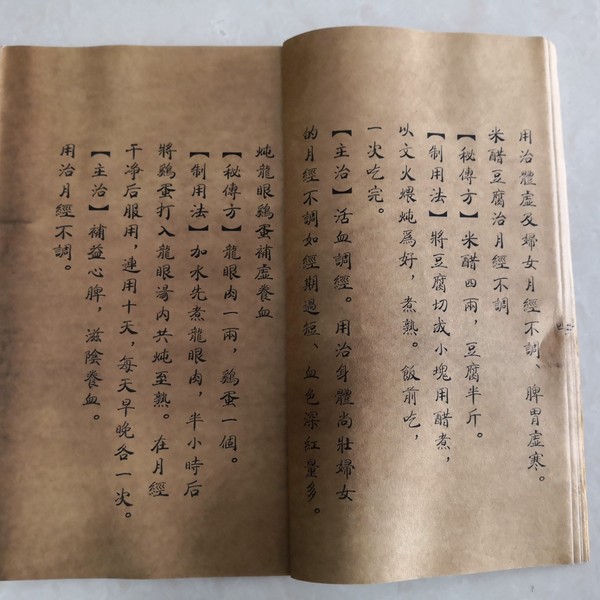 用治體虛及婦女月經不調、脾胃虛寒。
米醋豆腐治月經不調
【秘傳方】米醋四兩，豆腐半斤。
【制用法】將豆腐切成小塊用醋煮，
以文火煨炖爲好，煮熟。飯前吃，
一次吃完。
【主治】活血調經。用治身體尚壯婦女
的月經不調如經期過短、血色深紅量多。
炖龍眼鷄蛋補虛養血
【秘傳方】龍眼肉一兩，鷄蛋一個。
【制用法】加水先煮龍眼肉，半小時后
將鷄蛋打入龍眼湯内共炖至熟。在月經
干净后服用，連用十天，每天早晚各一次。
【主治】補益心脾，滋陰養血。
用治月經不調。